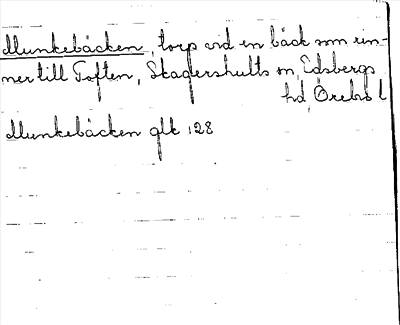 Munkebäcken, torp vid en bäck som rin-
ner till Toften, Skagershults sn, Edsbergs
hd, Örebro l
Munkebäcken glk 128